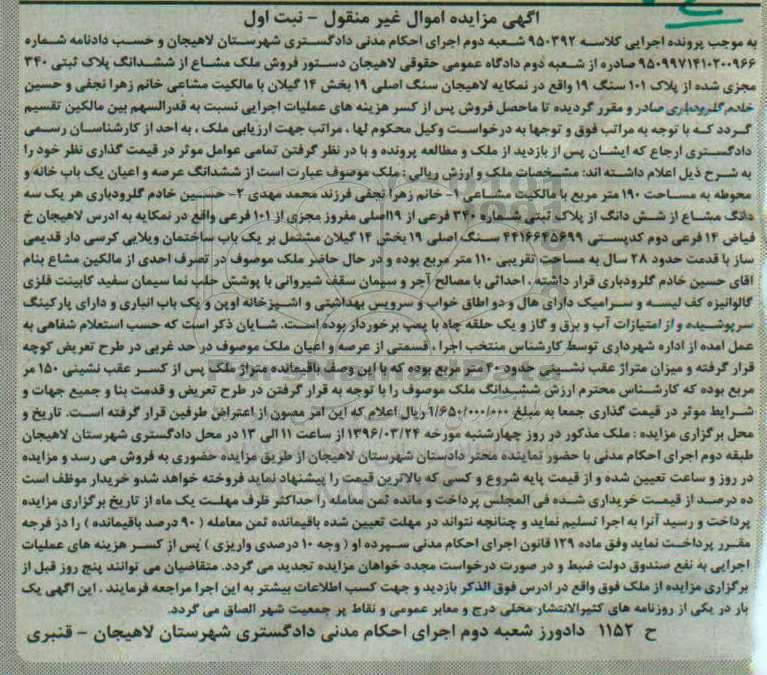 آگهی مزایده اموال غیر منقول - نبت اول
به موجب پرونده اجرایی کلاسه ۹۵۰۳۹۲ شعبه دوم اجرای احکام مدنی دادگستری شهرستان لاهیجان و حسب دادنامه شماره
۹۵۰۹۹۷۱۴۱۰۲۰۰۹۶۶ صادره از شعبه دوم دادگاه عمومی حقوقی لاهیجان دستور فروش ملک مشاع از ششدانگ پلاک ثبتی ۳۴۰
مجزی شده از پلاک ۱۰۱ سنگ ۱۹ واقع در نمکایه لاهیجان سنگ اصلی ۱۹ بخش ۱۴ گیلان با مالکیت مشاعی خانم زهرا نجفی و حسین
خادم گلرودباری صادر و مقرر گردیده تا ماحصل فروش پس از کسر هزینه های عملیات اجرایی نسبت به قدرالسهم بین مالکین تقسیم
گردد که با توجه به مراتب فوق و توجها به درخواست وکیل محکوم لها ، مراتب جهت ارزیابی ملک ، به احد از کارشناسان رسمی
دادگستری ارجاع که ایشان پس از بازدید از ملک و مطالعه پرونده و با در نظر گرفتن تمامی عوامل موثر در قیمت گذاری نظر خود را
به شرح ذیل اعلام داشته اند: مشخصات ملک و ارزش ریالی : ملک موصوف عبارت است از ششدانگ عرصه و اعیان یک باب خانه و
محوطه به مساحت ۱۹۰ متر مربع با مالکیت مشاعی ۱- خانم زهرا نجفی فرزند محمد مهدی ۲- حسین خادم گلرودباری هر یک سه
دانگ مشاع از شش دانگ از پلاک ثبتی شماره ۳۴۰ فرعی از ۱۹اصلی مفروز مجزی از ۱۰۱ فرعی واقع در نمکایه به ادرس لاهیجان خ
فیاض ۱۴ فرعی دوم کدپستی ۴۴۱۶۶۴۵۶۹۹ سنگ اصلی ۱۹ بخش ۱۴ گیلان مشتمل بر یک باب ساختمان ویلایی کرسی دار قدیمی
ساز با قدمت حدود ۲۸ سال به مساحت تقریبی ۱۱۰ متر مربع بوده و در حال حاضر ملک موصوف در تصرف احدی از مالکین مشاع بنام
آقای حسین خادم گلرودباری قرار داشته ، احداثی با مصالح آجر و سیمان سقف شیروانی با پوشش حلب نما سیمان سفید کابینت فلزی
گالوانیزه کف لیسه و سرامیک دارای هال و دو اطاق خواب و سرویس بهداشتی و اشپزخانه اوپن و یک باب انباری و دارای پارکینگ
سرپوشیده و از امتیازات آب و برق و گاز و یک حلقه چاه با پمپ برخوردار بوده است. شایان ذکر است که حسب استعلام شفاهی به
عمل امده از اداره شهرداری توسط کارشناس منتخب اجرا ، قسمتی از عرصه و اعیان ملک موصوف در حد غربی در طرح تعریض کوچه
قرار گرفته و میزان متراژ عقب نشینی حدود ۴۰ متر مربع بوده که با این وصف باقیمانده متراژ ملک پس از کسر عقب نشینی ۱۵۰ مر
مربع بوده که کارشناس محترم ارزش ششدانگ ملک موصوف را با توجه به قرار گرفتن در طرح تعریض و قدمت بنا و جمیع جهات و
شرایط موثر در قیمت گذاری جمعا به مبلغ ۱/۶۵۰/۰۰۰/۰۰۰ ریال اعلام که این امر مصون از اعتراض طرفین قرار گرفته است. تاریخ و
محل برگزاری مزایده : ملک مذکور در روز چهارشنبه مورخه ۱۳۹۶/۰۳/۲۴ از ساعت ۱۱ الی ۱۳ در محل دادگستری شهرستان لاهیجان
طبقه دوم اجرای احکام مدنی با حضور نماینده محتر دادستان شهرستان لاهیجان از طریق مزایده حضوری به فروش می رسد و مزایده
در روز و ساعت تعیین شده و از قیمت پایه شروع و کسی که بالاترین قیمت را پیشنهاد نماید فروخته خواهد شدو خریدار موظف است
ده درصد از قیمت خریداری شده فی المجلس پرداخت و مانده ثمن معامله را حداکثر ظرف مهلت یک ماه از تاریخ برگزاری مزایده
پرداخت و رسید آنرا به اجرا تسلیم نماید و چنانچه نتواند در مهلت تعیین شده باقیمانده ثمن معامله ( ۹۰ درصد باقیمانده ) را در فرجه
مقرر پرداخت نماید وفق ماده ۱۲۹ قانون اجرای احکام مدنی سپرده او ( وجه ۱۰ درصدی واریزی ) پس از کسر هزینه های عملیات
اجرایی به نفع صندوق دولت ضبط و در صورت درخواست مجدد خواهان مزایده تجدید می گردد. متقاضیان می توانند پنج روز قبل از
برگزاری مزایده از ملک فوق واقع در ادرس فوق الذکر بازدید و جهت کسب اطلاعات بیشتر به این اجرا مراجعه فرمایند . این اگهی یک
بار در یکی از روزنامه های کثیرالانتشار محلی درج و معابر عمومی و نقاط پر جمعیت شهر الصاق می گردد.
ح ۱۱۵۲ دادورز شعبه دوم اجرای احکام مدنی دادگستری شهرستان لاهیجان - قنبری